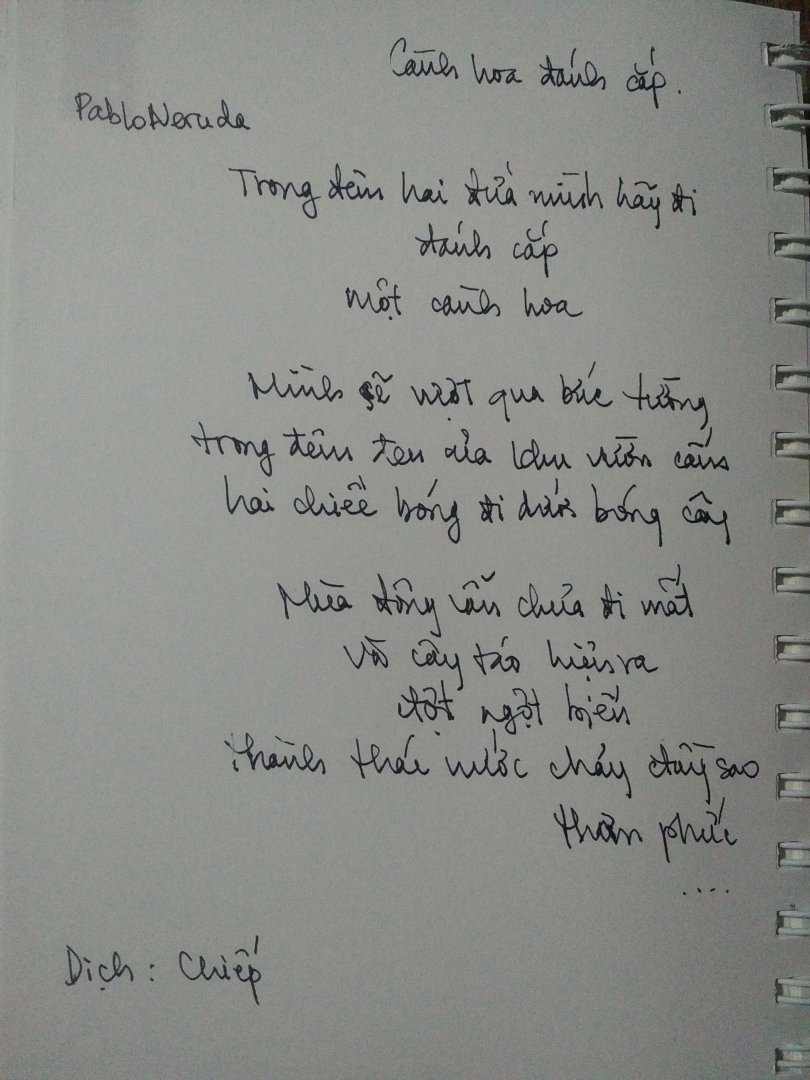 Cành hoa đánh cắp.
Pablo Neruda
Trong đêm hai đứa mình hãy đi
đánh cắp
một cành hoa
Mình sẽ vượt qua bức tường
trong đêm đen của khu vườn cấm
hai chiếc bóng đi dưới bóng cây
Mùa đông vẫn chưa đi mất
và cây táo hiện ra
đột ngột biến
thành thác nước chảy đầy sao
thơm phức
....
Dịch: Chiếp